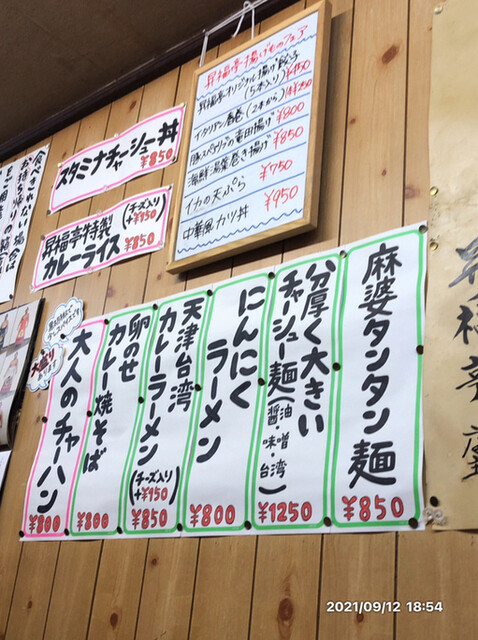 昇福亭揚げものフェア
昇福亭オリジナル揚げ餃子
(5本入り)¥450
イタリアン春巻(2本から)¥250
豚スペアリブの唐揚げ ¥800
海鮮湯葉巻き揚げ ¥850
イカの天ぷら ¥750
中華風カツ丼 ¥950
スタミナチャーシュー丼
¥850
昇福亭特製
カレーライス
(チーズ入り
+¥150)
¥850
食べきれない場合は
お持ち帰りの
麻婆タンタン麺
¥850
分厚く大きい
チャーシュー麺(醤油・味噌・台湾)
¥1250
にんにく
ラーメン
¥800
天津台湾
カレーラーメン
(チーズ入り
+¥150)
¥850
卵のせ
カレー焼そば
¥800
大盛り
大人のチャーハン
¥800
昇福亭
2021/09/12 18:54